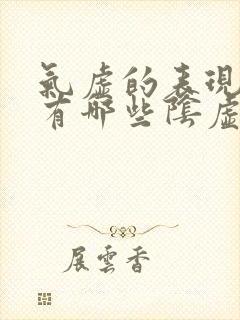 氣虛的表現
有哪些陰虛
展雲香